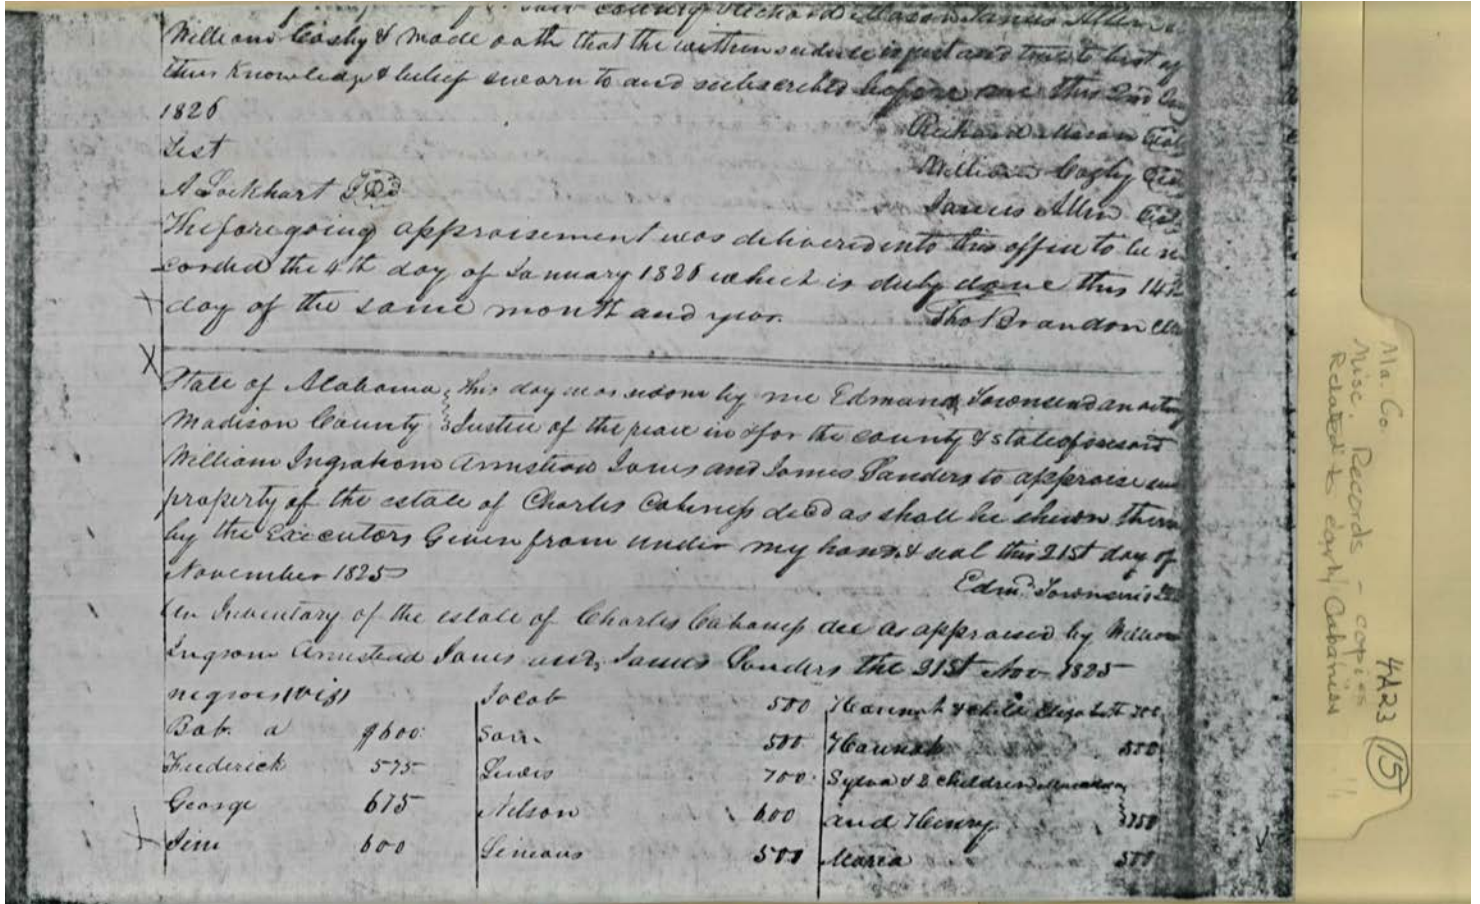 County Richard Mason James Allen
William Cosby & made oath that the within is just and true to best of
their Knowledge & belief sworn to and subscribed before me this 2nd
1826
Test
Richard Mason Seal
William Cosby Seal
A Lockhart
James Allen Seal
The foregoing appraisement was delivered into this office to be re
corded the 4th day of January 1826 which is duly done this 14th
day of the same month and year.
Tho Brandon Clk
State of Alabama this day was by me Edmund Townsend an acting
Madison County Justice of the peace in & for the county & state aforesaid
William Ingraham Armstead Jones and James Sanders to appraise
property of the estate of Charles Cabiness decd as shall be shewn them
by the Executors Given from under my hand & seal this 21st day of
November 1825
Edmd Townsend
An Inventory of the estate of Charles Cabaness dec as appraised by William
Ingram Armstead Jones and James Sanders the 21st Nov 1825
negroes (viz)
Bob a $600
Frederick 575
George 675
Jim 600
Jacob 500
Sam 500
Lewis 700
Nelson 600
Simons 500
Hannah & child Elizabeth 700
Hannah 500
Sylva & 2 children
and Henry 750
Maria 500
Ma. Co. 4A23 (15)
Misc. Records - copies
Related to early Cabaniss